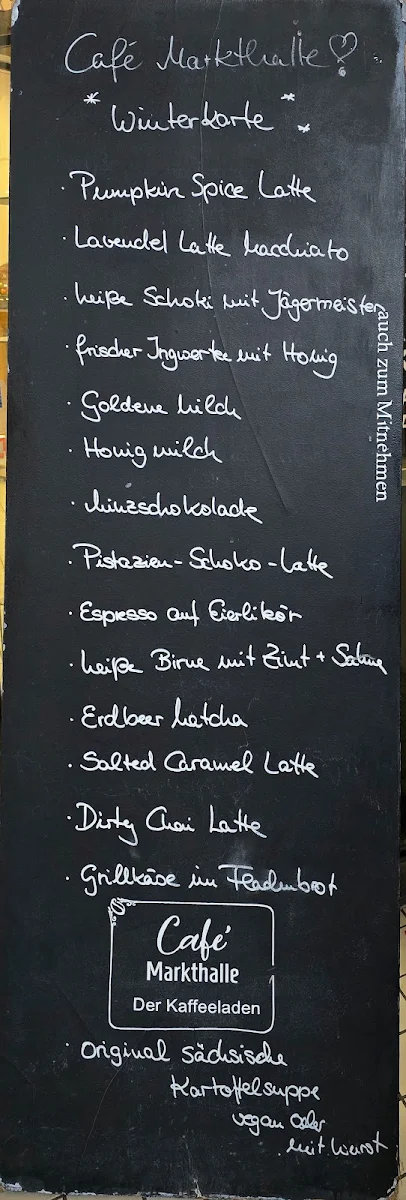 Café Markthalle!
* Winterkarte *
· Pumpkin Spice Latte
· Lavendel Latte Macchiato
· heiße Schoki mit Jägermeister
· frischer Ingwertee mit Honig
· Goldene Milch
· Honigmilch
· Minzschokolade
· Pistazien-Schoko-Latte
· Espresso auf Eierlikör
· heiße Birne mit Zimt + Sahne
· Erdbeer Matcha
· Salted Caramel Latte
· Dirty Chai Latte
· Grillkäse im Fladenbrot
auch zum Mitnehmen
Café
Markthalle
Der Kaffeeladen
· Original sächsische
Kartoffelsuppe
vegan oder
mit Wurst